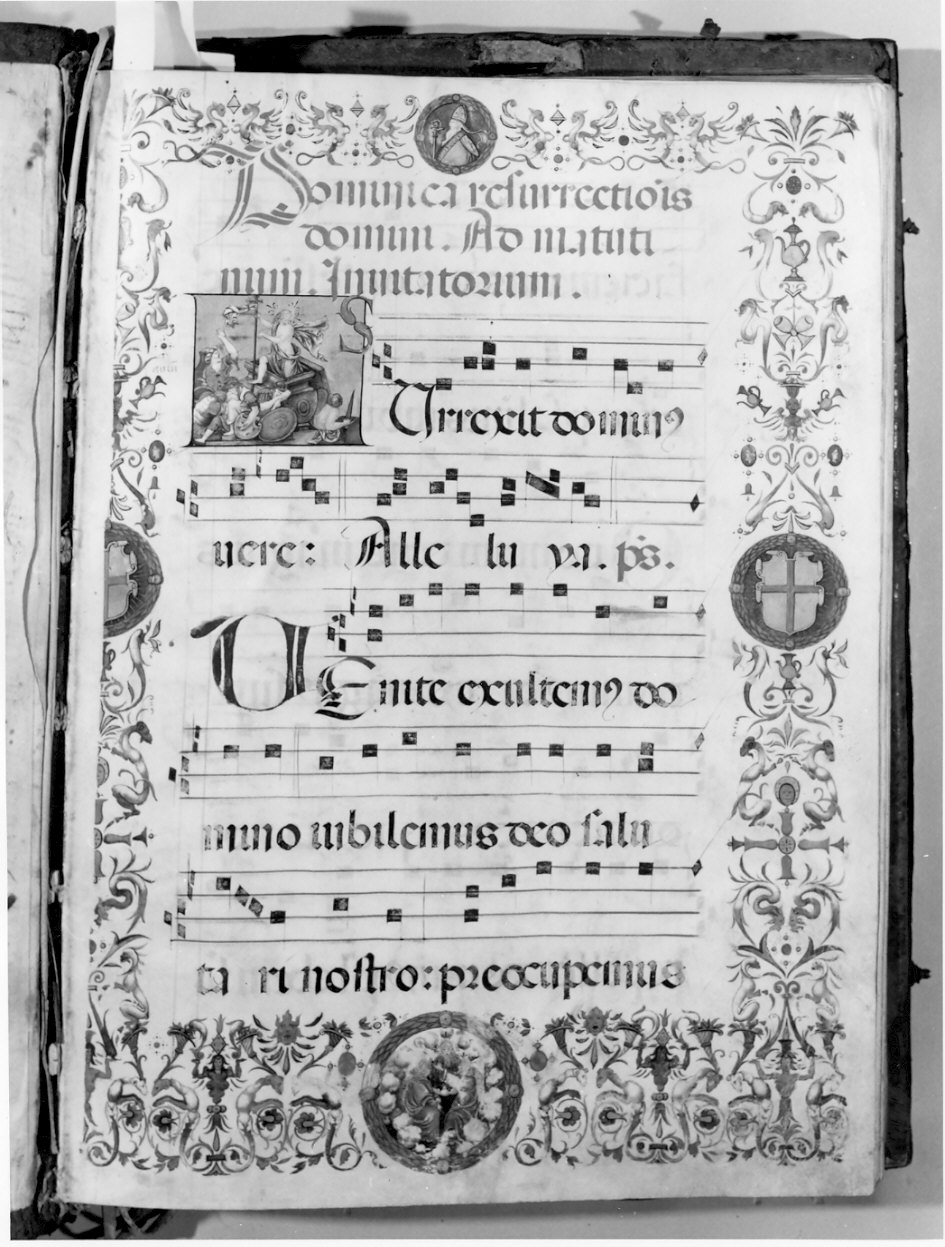 Dominica resurrectiõis
domini. Ad matuti
num. Inuitatorium.
SUrrexit dominꝰ
uere: Alle lu ya. p̃s.
UEnite exultemꝰ do
mino iubilemus deo salu
ta ri nostro: preocupemus